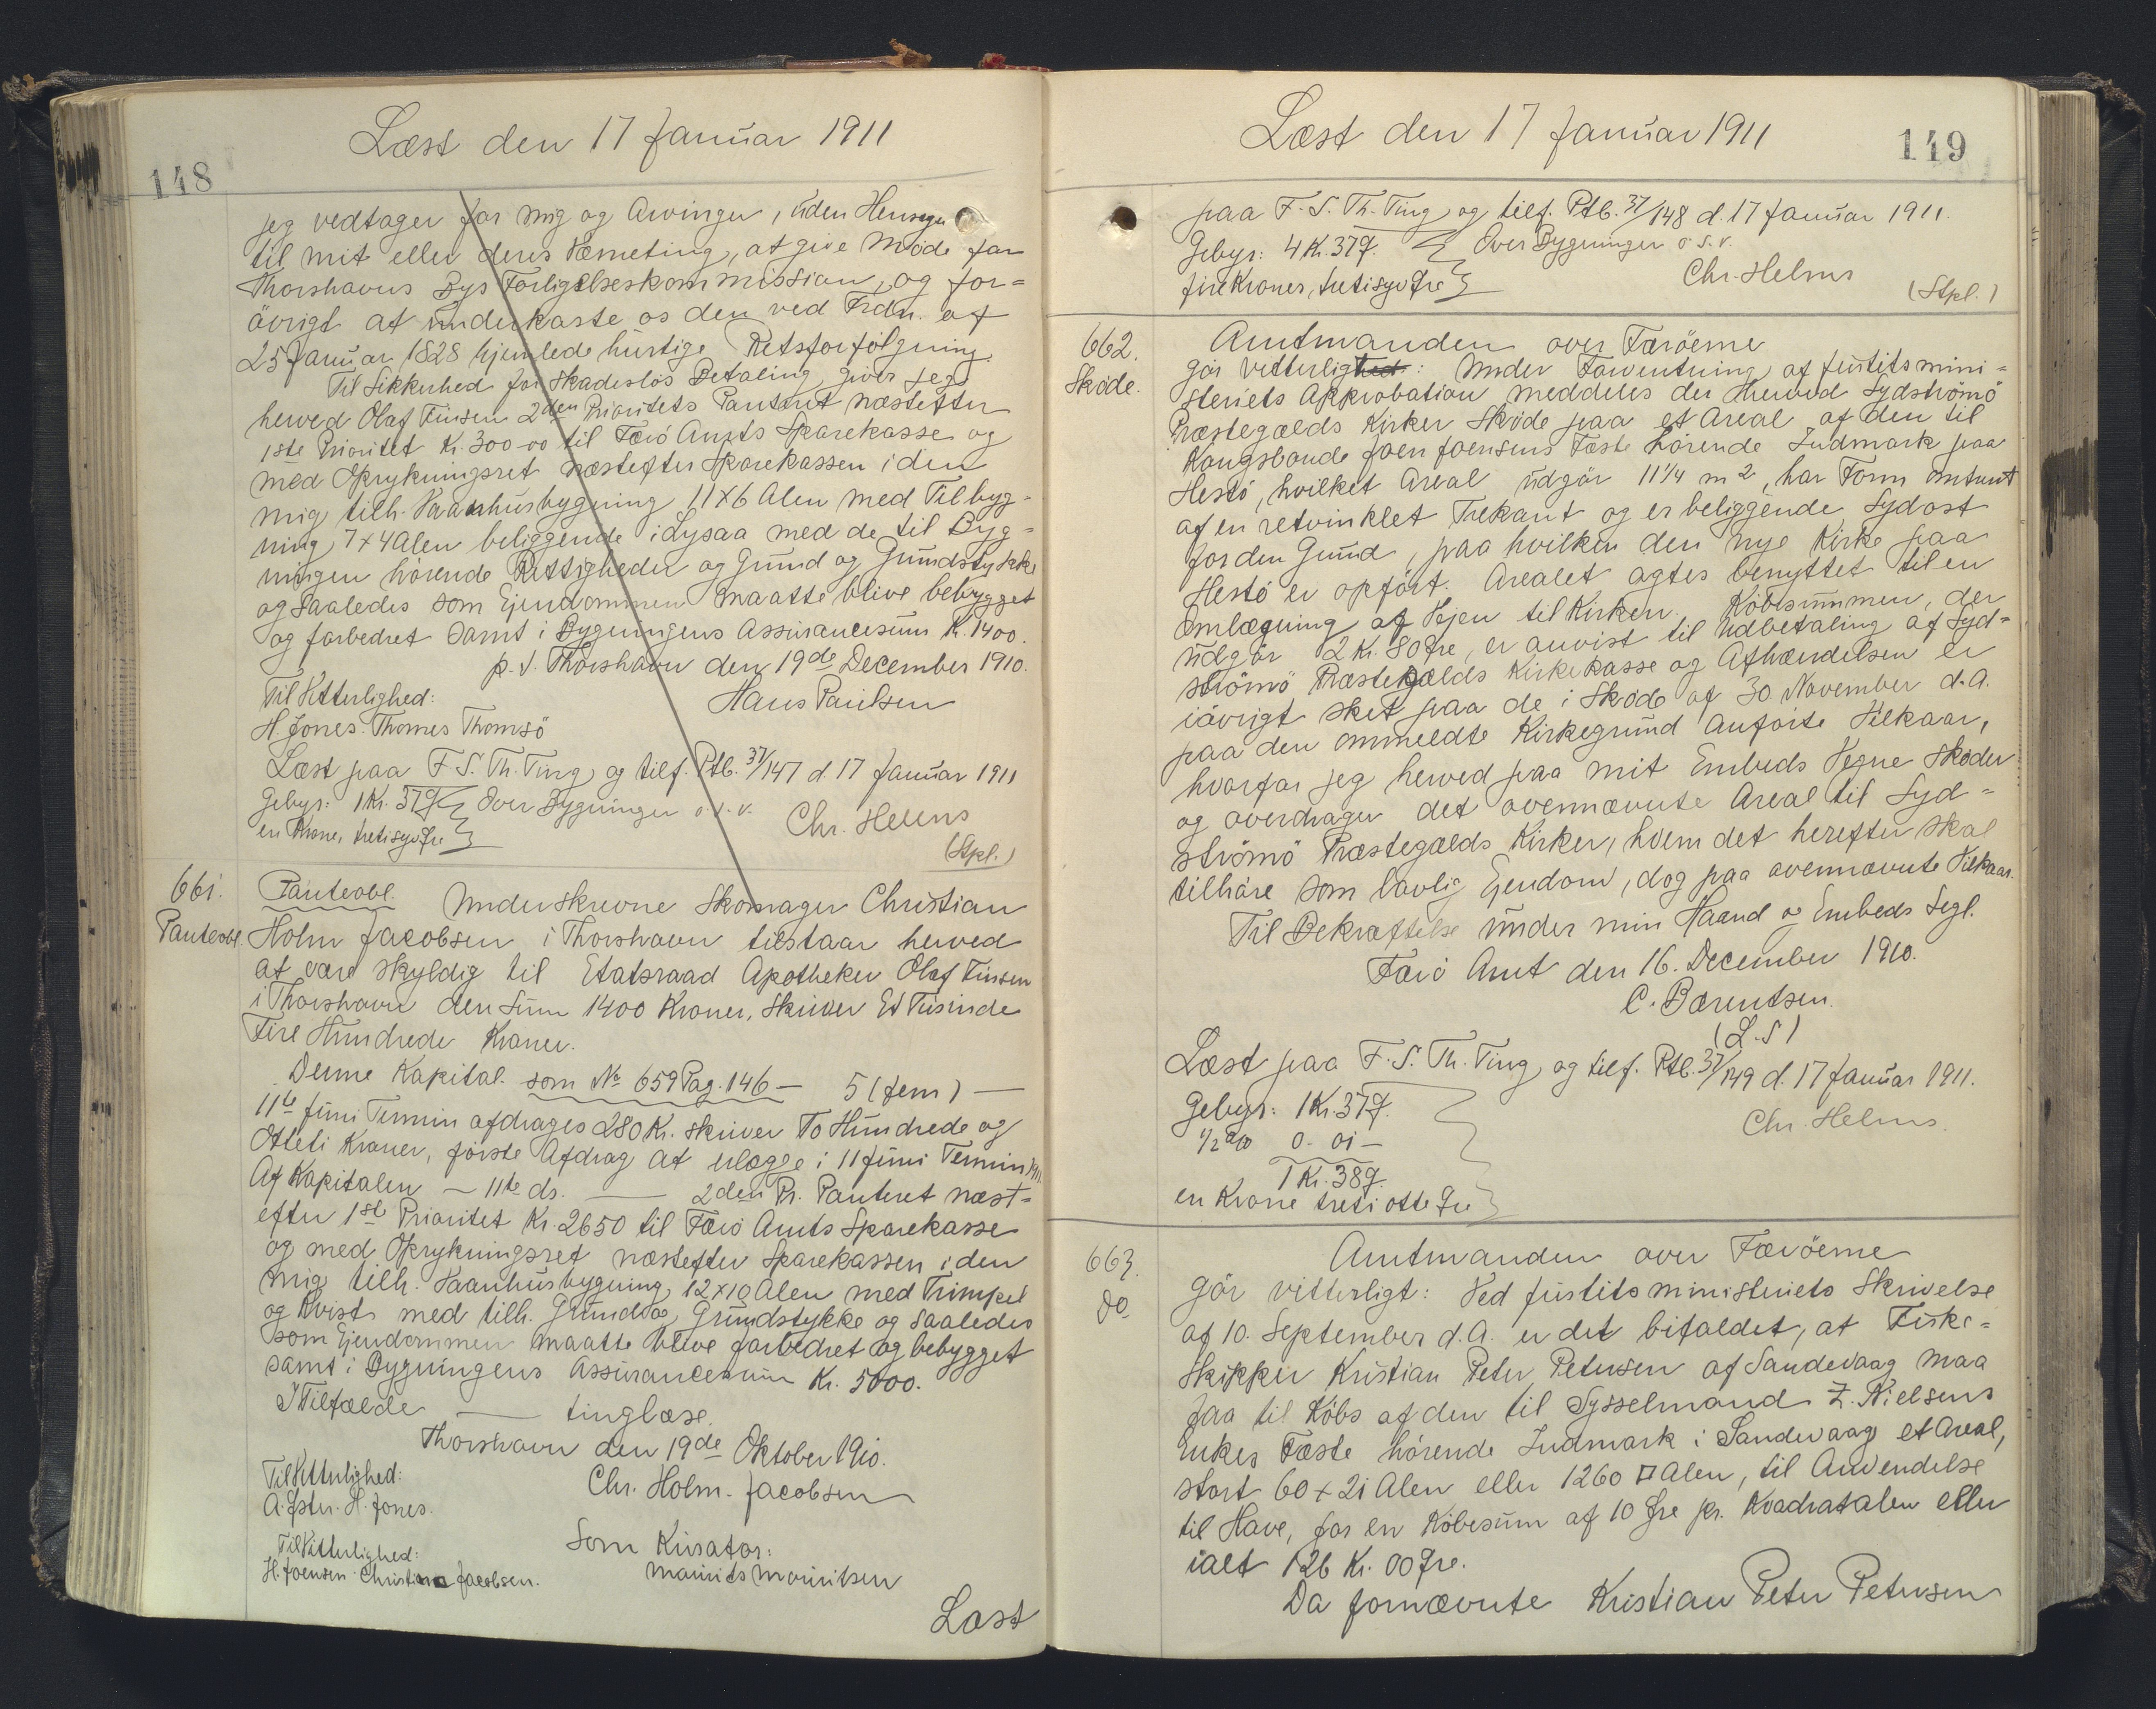 Læst den 17 Januar 1911
148
jeg vedtager for mig og Arvinger, uden Hensyn
til mit eller deres Værneting, at give Møde for
Thorshavns Bys Forligelseskommission, og for=
övrigt at underkaste os den ved Frdn. af
25 Januar 1828 hjemlede hurtige Retsforfölgning.
Til Sikkerhed for skadeslös Betaling giver jeg
herved Olaf Finsen 2den Prioritets Panteret næstefter
1ste Prioritet Kr. 300-00 til Færö Amts Sparekasse og
med Oprykningsret næstefter Sparekassen i den
mig tilh. Vaanhusbygning 11 x 6 Alen med Tilbyg=
ning 7 x 4 Alen beliggende i Lysaa med de til Byg=
ningen hörende Rettigheder og Grund og Grundstykke
og saaledes som Ejendommen maatte blive bebygget
og forbedret samt i Bygningens Assurancesum Kr. 1400.
p. t. Thorshavn den 19de December 1910.
Til Vitterlighed: Hans Paulsen
H. Jones. Thomes Thomsö
Læst paa F. S. Th. Ting og tilf. Ptb. 37/147 d. 17 Januar 1911
Gebyr: 1 Kr. 37 Ø. Over Bygninger o. s. v.
en Krone, tretisyv Øre Chr. Helms
(Stpl.)
661.
Panteobl.
Panteobl. Underskrevne Skomager Christian
Holm Jacobsen i Thorshavn tilstaar herved
at være skyldig til Etatsraad Apotheker Olaf Finsen
i Thorshavn den Sum 1400 Kroner, skriver Et Tusinde
Fire Hundrede Kroner.
Denne Kapital som No 659 Pag. 146 — 5 (fem) —
11te Juni Termin afdrages 280 Kr. skriver To Hundrede og
Otteti Kroner, förste Afdrag at erlægge i 11 Juni Termin 1911.
Af Kapitalen — 11te ds. — 2den Pr. Panteret næst=
efter 1ste Prioritet Kr. 2650 til Færö Amts Sparekasse
og med Oprykningsret næstefter Sparekassen i den
mig tilh. Vaanhusbygning 12 x 10 Alen med Trimpel
og Kvist med tilh. Grund og Grundstykke og saaledes
som Ejendommen maatte blive forbedret og bebygget
samt i Bygningens Assurancesum Kr. 5000.
I Tilfælde — tinglæse.
Thorshavn den 19de Oktober 1910.
Til Vitterlighed: Chr. Holm-Jacobsen
A. Ester. H. Jones.
Til Vitterlighed: Som Kurator:
H. Joensen. Christian Jacobsen. Maurits Mouritsen
Læst
Læst den 17 Januar 1911
149
paa F. S. Th. Ting og tilf. Ptb. 37/148 d. 17 Januar 1911.
Gebyr: 4 Kr. 37 Ø. Over Bygninger o. s. v.
fire Kroner, tretisyv Øre Chr. Helms
(Stpl.)
662.
Sköde.
Amtmanden over Færöerne
gör vitterligthed: Under Forventning af Justitsmini=
steriets Approbation meddeles der Herved Sydströmö
Præstegælds Kirker Sköde paa et Areal af den til
Kongsbonde Joen Joensens Fæste hörende Indmark paa
Hestö, hvilket Areal udgör 11 1/4 m2, har Form omtrent
af en retvinklet Trekant og er beliggende Sydost
for den Grund, paa hvilken den nye Kirke paa
Hestö er opfört. Arealet agtes benyttet til en
Omlægning af Vejen til Kirken. Köbesummen, der
udgör 2 Kr. 80 Øre, er anvist til Udbetaling af Syd=
strömö Præstegælds Kirkekasse og Afhændelsen er
iövrigt sket paa de i Sköde af 30 November d. A.
paa den ommeldte Kirkegrund anförte Vilkaar,
hvorfor jeg herved paa mit Embeds Vegne sköder
og overdrager det ovennævnte Areal til Syd=
strömö Præstegælds Kirker, hvem det herefter skal
tilhöre som lovlig Ejendom, dog paa ovennævnte Vilkaar.
Til Bekræftelse under min Haand og Embeds Segl.
Færö Amt den 16. December 1910.
C. Bærentsen.
(L. S)
Læst paa F. S. Th. Ting og tilf. Ptb. 37/149 d. 17 Januar 1911.
Gebyr: 1 Kr. 37 Ø. Chr. Helms.
0 - 01 —
1 Kr. 38 Ø.
en Krone treti otte Øre
663.
do
Amtmanden over Færöerne
gör vitterligt: Ved Justitsministeriets Skrivelse
af 10. September d. A. er det bifaldet, at Fiske=
skipper Kristian Peter Petersen af Sandevaag maa
faa til Köbs af den til Sysselmand Z. Nielsens
Enkes Fæste hörende Indmark i Sandevaag et Areal,
stort 60 x 21 Alen eller 1260 □ Alen, til Anvendelse
til Have, for en Köbesum af 10 Øre pr. Kvadratalen eller
ialt 126 Kr. 00 Øre.
Da fornævnte Kristian Peter Petersen